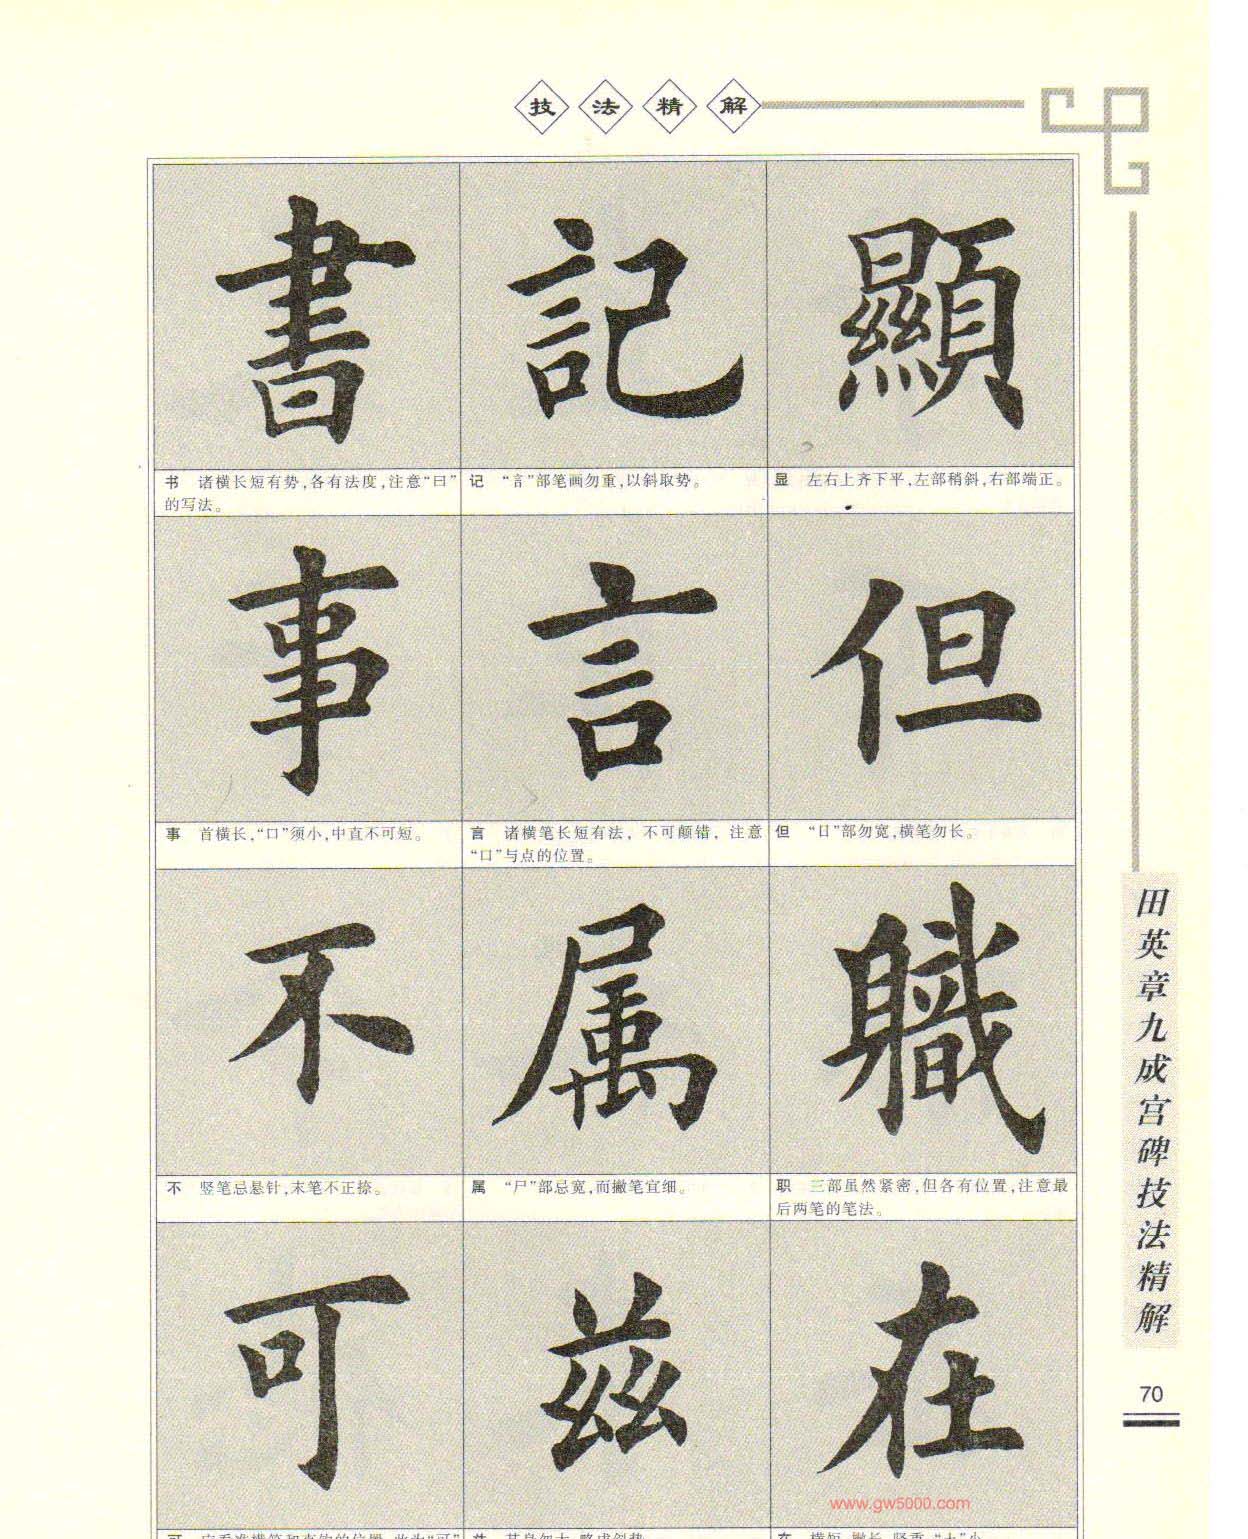 技法精解
書 記 顯
书 诸横长短有势,各有法度,注意“曰”
的写法。
记 “言”部笔画勿重,以斜取势。
显 左右上齐下平,左部稍斜,右部端正。
事 言 但
事 首横长,“口”须小,中直不可短。
言 诸横笔长短有法，不可颠错，注意
“口”与点的位置。
但 “日”部勿宽,横笔勿长。
不 属 職
不 竖笔忌悬针,末笔不正捺。
属 “尸”部忌宽,而撇笔宜细。
职 三部虽然紧密,但各有位置,注意最
后两笔的笔法。
可 兹 在
www.gw5000.com
田英章九成宫碑技法精解
70